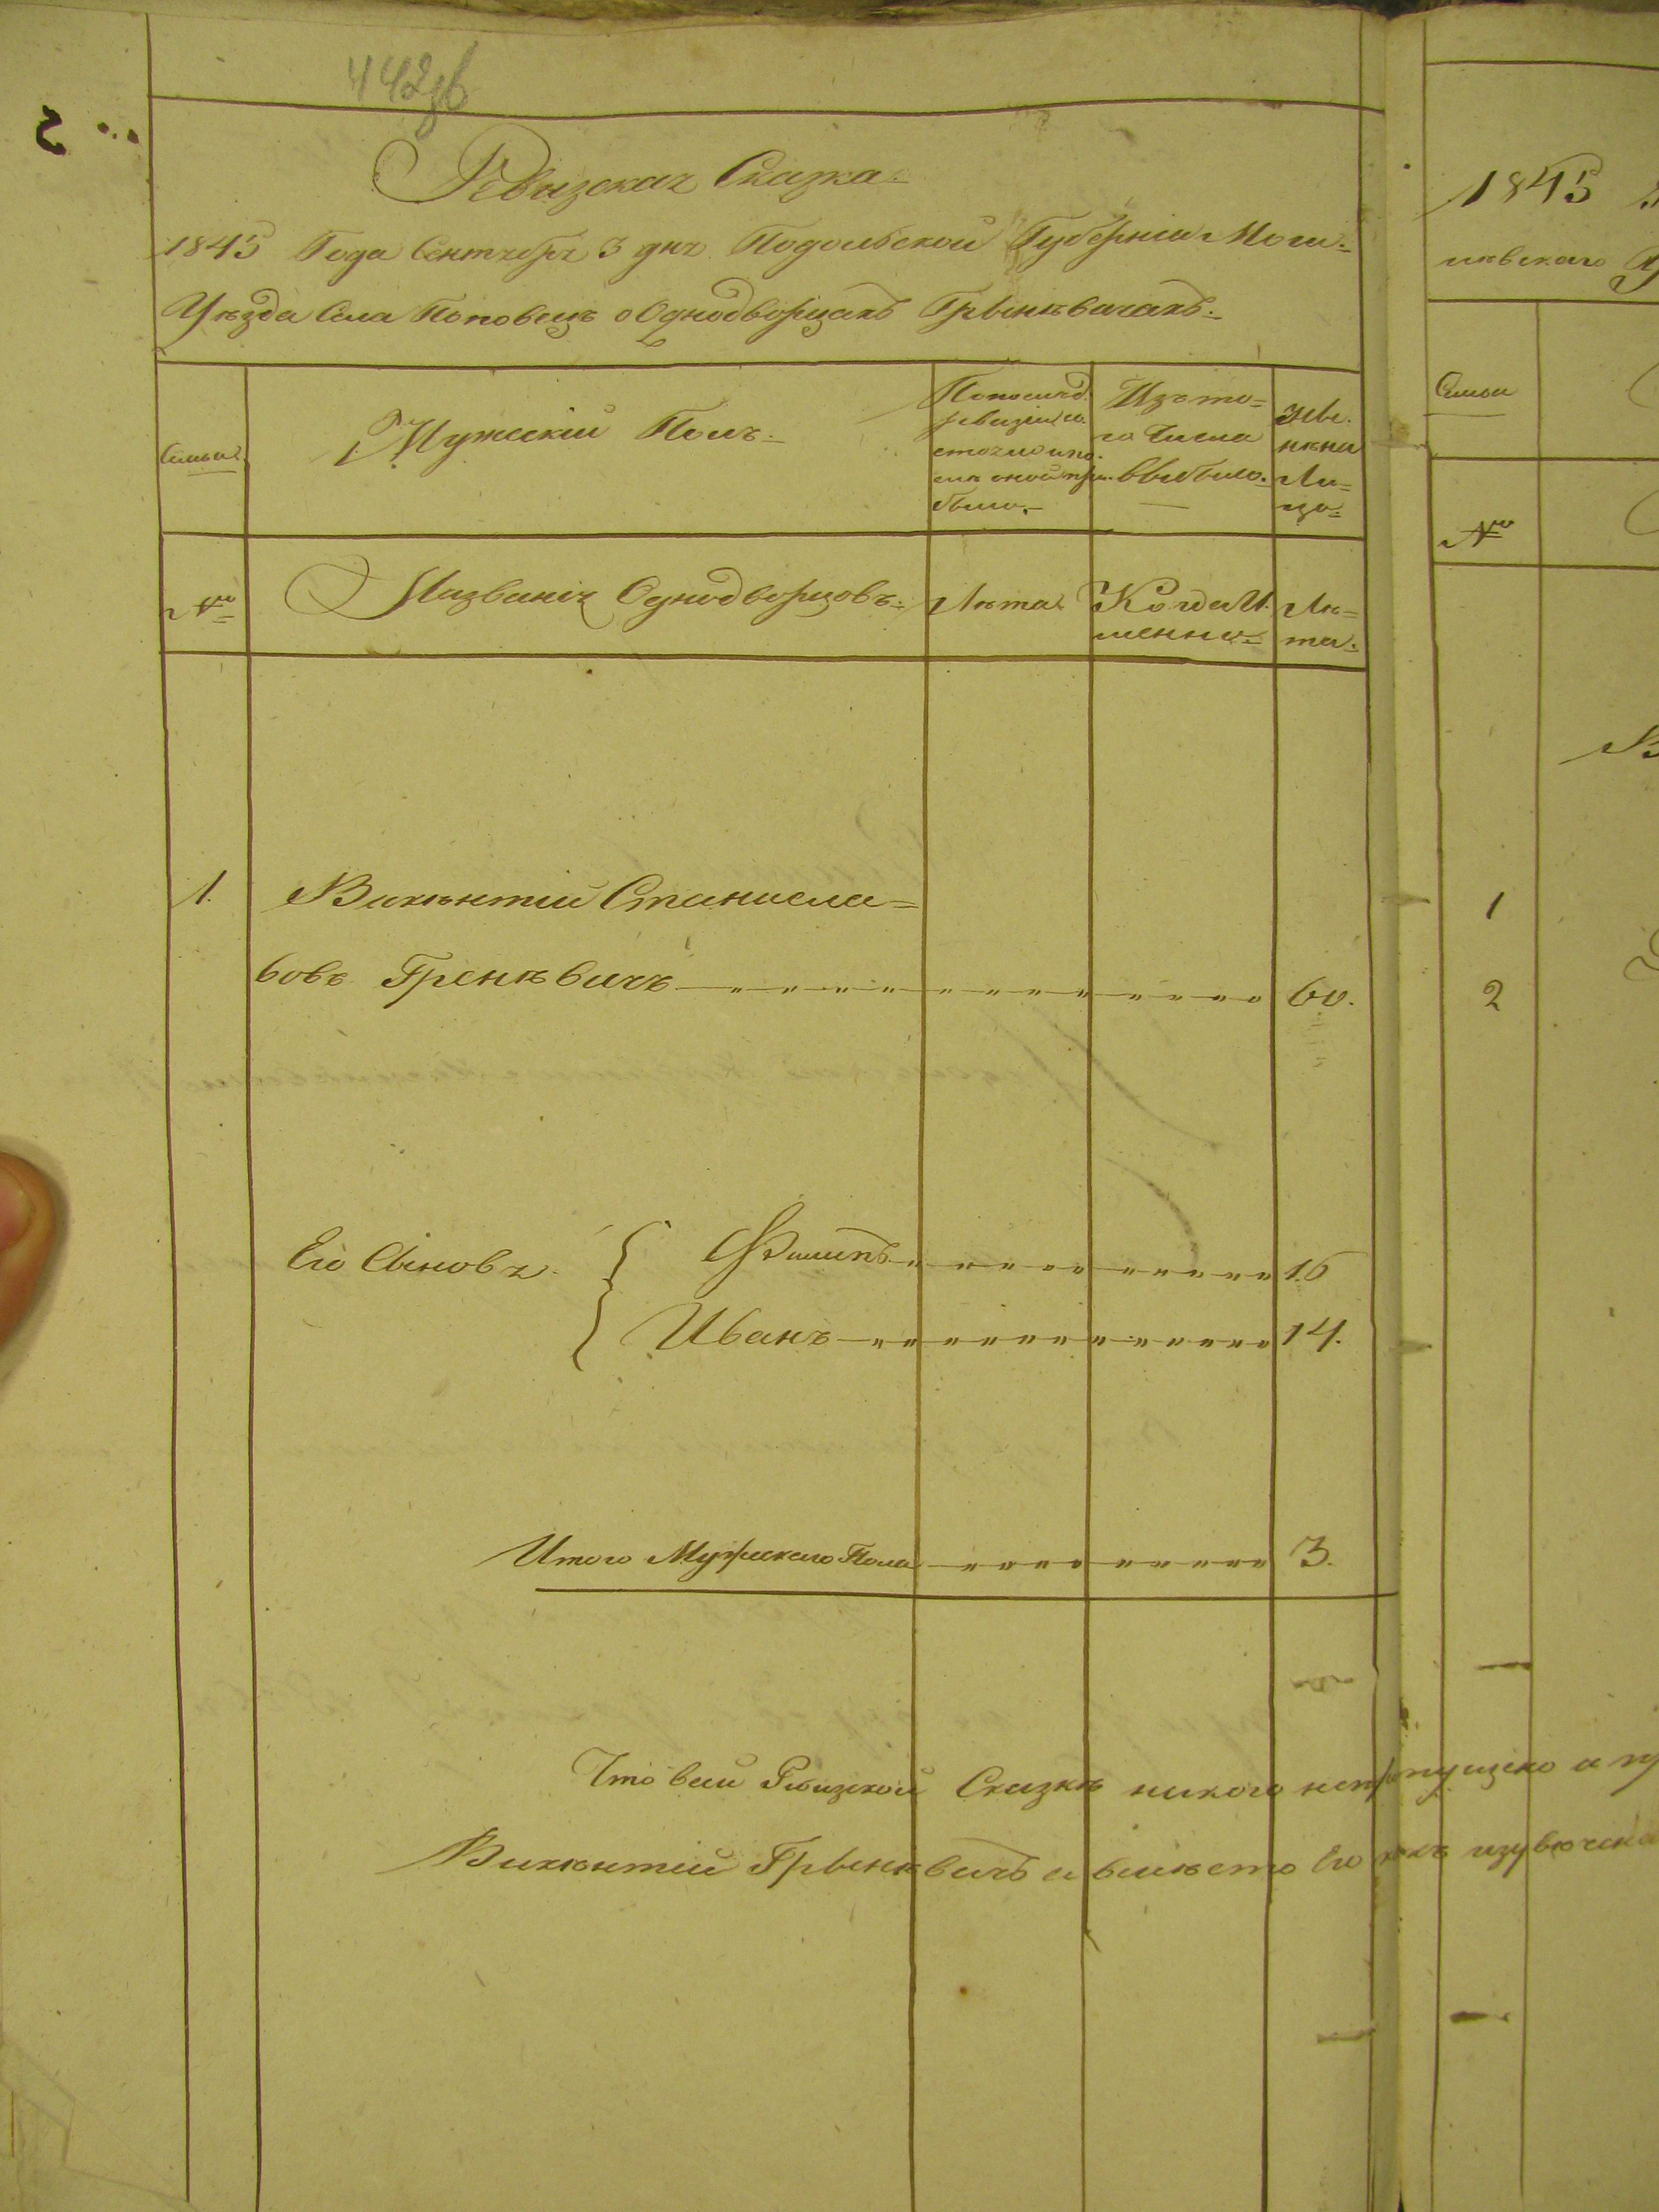 442зв
Ревизская Сказка
1845 Года Сентебря 3 дня Подольской Губерніи Моги-
Уѣзда Села Поповецъ о Однодворцахъ Грынѣвичахъ.
Семьи
Мужескій Полъ.
По послѣд.
ревизіи со
стояло и по-
слѣ оной при-
было.
Изъ то=
го Числа
Выбыло.
Нѣ на
Ли=
цо=
№
Названія Однодворцовъ.
Лѣта
Когда И
менно
Лѣ=
та.
1. Викѣнтій Станисла=
вовъ Гренѣвичъ 60.
Его Сыновя Филипъ 16
Иванъ 14.
Итого Мужескаго Пола 3.
Что всей Ревизской Сказкѣ никого непропущено и пр
Викѣнтій Грынѣвичъ а вмѣсто Его
1845
Семьи
№
1
2